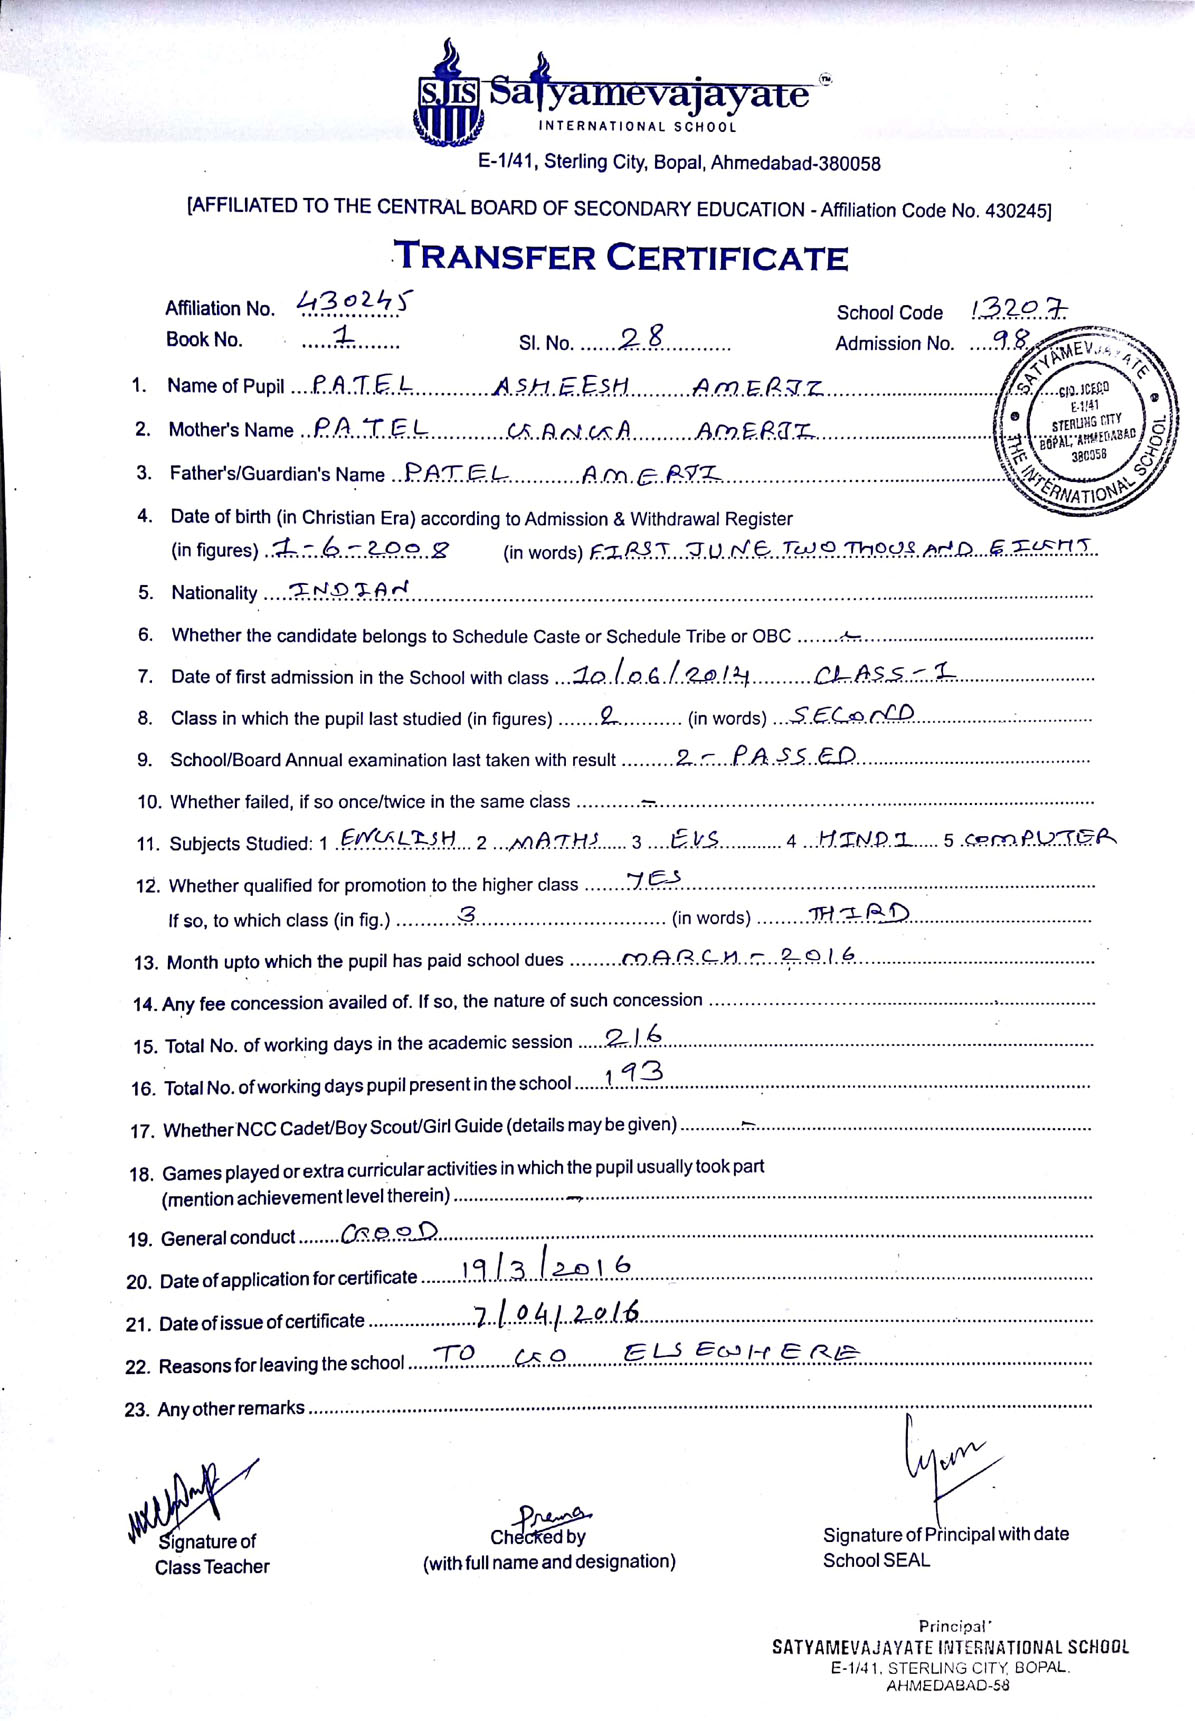 SJIS Satyamevajayate TM
INTERNATIONAL SCHOOL
E-1/41, Sterling City, Bopal, Ahmedabad-380058
[AFFILIATED TO THE CENTRAL BOARD OF SECONDARY EDUCATION - Affiliation Code No. 430245]
TRANSFER CERTIFICATE
Affiliation No. 430245 School Code 13207
Book No. 1 Sl. No. 28 Admission No. 98
SATYAMEVJAYATE THE INTERNATIONAL SCHOOL
C/O. ICECD
E-1/41
STERLING CITY
BOPAL, AHMEDABAD
380058
1. Name of Pupil PATEL ASHEESH AMERJI
2. Mother's Name PATEL GANGA AMERJI
3. Father's/Guardian's Name PATEL AMERJI
4. Date of birth (in Christian Era) according to Admission & Withdrawal Register
(in figures) 1-6-2008 (in words) FIRST JUNE TWO THOUSAND EIGHT
5. Nationality INDIAN
6. Whether the candidate belongs to Schedule Caste or Schedule Tribe or OBC -
7. Date of first admission in the School with class 10/06/2014 CLASS-1
8. Class in which the pupil last studied (in figures) 2 (in words) SECOND
9. School/Board Annual examination last taken with result 2 - PASSED
10. Whether failed, if so once/twice in the same class -
11. Subjects Studied: 1 ENGLISH 2 MATHS 3 EVS 4 HINDI 5 COMPUTER
12. Whether qualified for promotion to the higher class YES
If so, to which class (in fig.) 3 (in words) THIRD
13. Month upto which the pupil has paid school dues MARCH - 2016
14. Any fee concession availed of. If so, the nature of such concession
15. Total No. of working days in the academic session 216
16. Total No. of working days pupil present in the school 193
17. Whether NCC Cadet/Boy Scout/Girl Guide (details may be given) -
18. Games played or extra curricular activities in which the pupil usually took part
(mention achievement level therein) -
19. General conduct GOOD
20. Date of application for certificate 19/3/2016
21. Date of issue of certificate 7/04/2016
22. Reasons for leaving the school TO GO ELSEWHERE
23. Any other remarks
Prema
Signature of Checked by Signature of Principal with date
Class Teacher (with full name and designation) School SEAL
Principal
SATYAMEVAJAYATE INTERNATIONAL SCHOOL
E-1/41, STERLING CITY, BOPAL,
AHMEDABAD-58